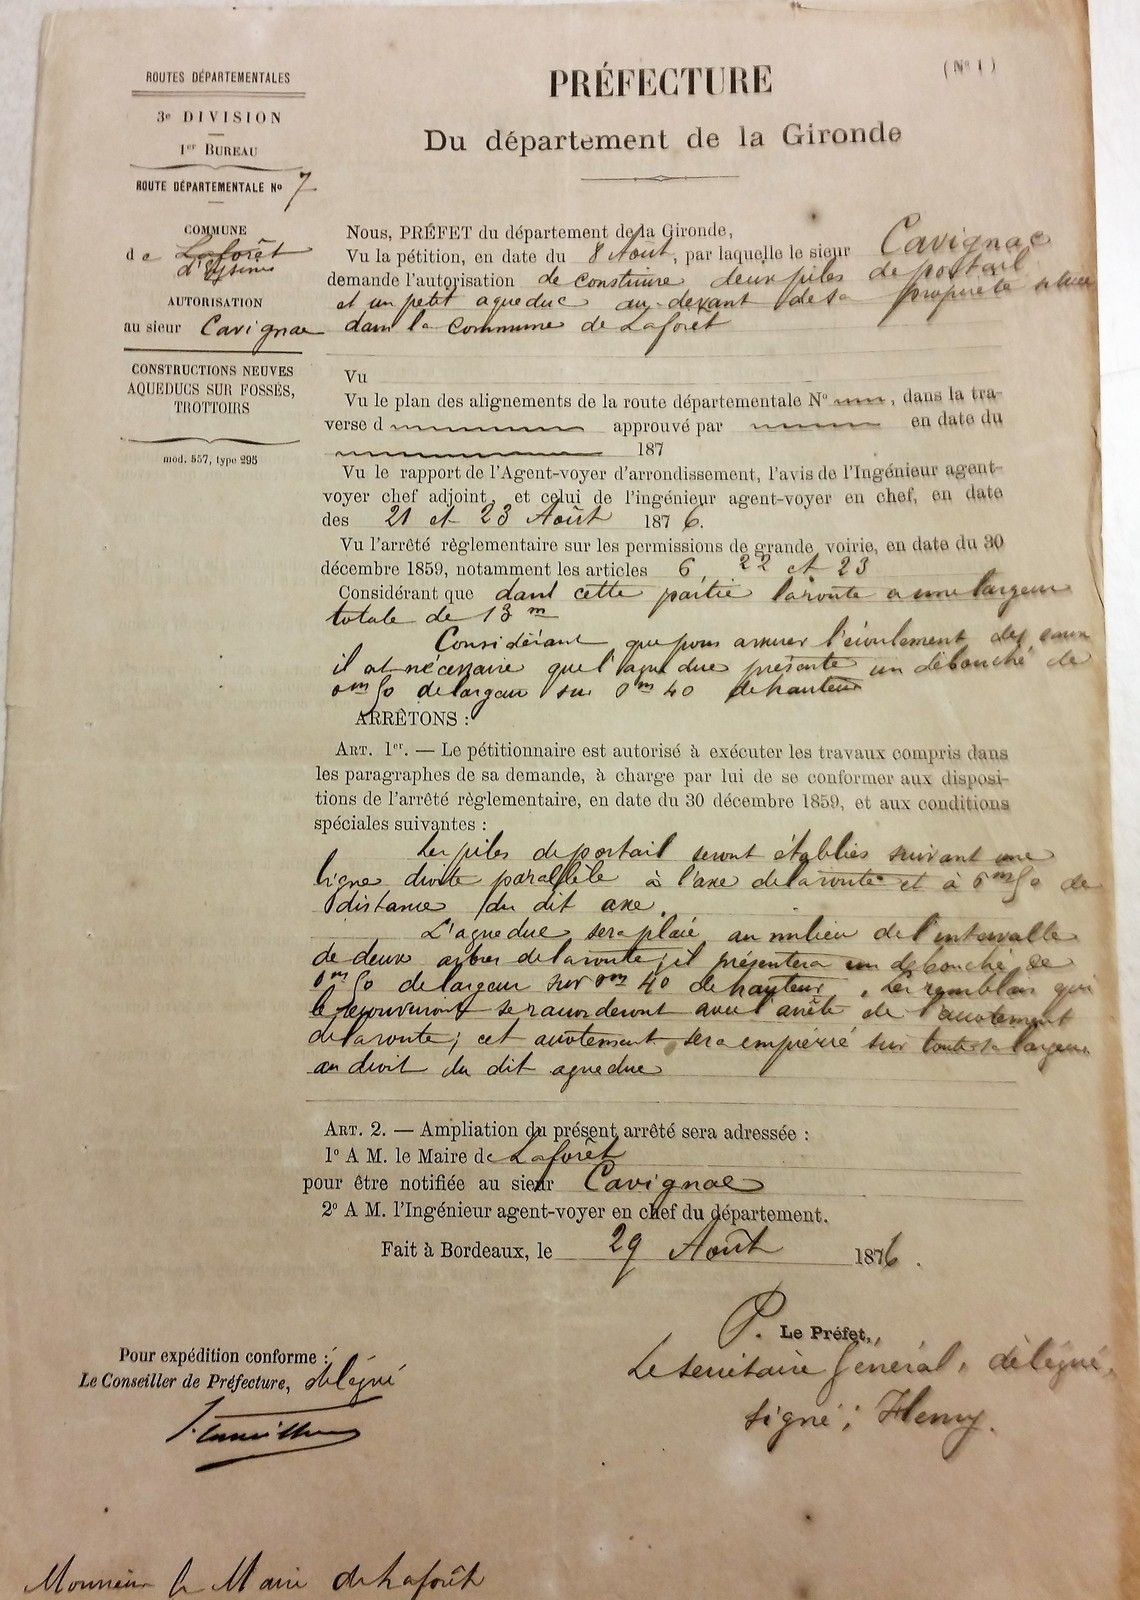 ROUTES DÉPARTEMENTALES
3e DIVISION
1er BUREAU
ROUTE DÉPARTEMENTALE No 7
COMMUNE
de Laforêt
d'Eysines
AUTORISATION
au sieur Cavignac
CONSTRUCTIONS NEUVES
AQUEDUCS SUR FOSSÉS,
TROTTOIRS
mod. 557, type 295
(No 1)
PRÉFECTURE
Du département de la Gironde
Nous, PRÉFET du département de la Gironde,
Vu la pétition, en date du 8 Août, par laquelle le sieur Cavignac
demande l'autorisation de construire deux piles de portail
et un petit aqueduc au-devant de sa propriété située
dans la commune de Laforêt
Vu
Vu le plan des alignements de la route départementale No , dans la tra-
verse d approuvé par en date du
187
Vu le rapport de l'Agent-voyer d'arrondissement, l'avis de l'Ingénieur agent-
voyer chef adjoint, et celui de l'ingénieur agent-voyer en chef, en date
des 21 et 23 Août 1876.
Vu l'arrêté règlementaire sur les permissions de grande voirie, en date du 30
décembre 1859, notamment les articles 6, 22 et 23
Considérant que dans cette partie la route a une largeur
totale de 13 m
Considérant que pour assurer l'écoulement des eaux
il est nécessaire que l'aqueduc présente un débouché de
0m50 de largeur sur 0m40 de hauteur
ARRÊTONS :
ART. 1er. — Le pétitionnaire est autorisé à exécuter les travaux compris dans
les paragraphes de sa demande, à charge par lui de se conformer aux disposi-
tions de l'arrêté règlementaire, en date du 30 décembre 1859, et aux conditions
spéciales suivantes :
Les piles de portail seront établies suivant une
ligne droite parallèle à l'axe de la route et à 6m50 de
distance du dit axe.
L'aqueduc sera placé au milieu de l'intervalle
de deux arbres de la route; il présentera un débouché de
0m50 de largeur sur 0m40 de hauteur. Les remblais qui
le recouvriront se raccorderont avec l'arête de l'accotement
de la route; cet accotement sera empierré sur toute sa largeur
au droit du dit aqueduc
ART. 2. — Ampliation du présent arrêté sera adressée :
1o A M. le Maire de Laforêt
pour être notifiée au sieur Cavignac
2o A M. l'Ingénieur agent-voyer en chef du département.
Fait à Bordeaux, le 29 Août 1876.
P. Le Préfet,
Le secrétaire Général, délégué,
signé : Henry.
Pour expédition conforme :
Le Conseiller de Préfecture, délégué
Monsieur le Maire de Laforêt